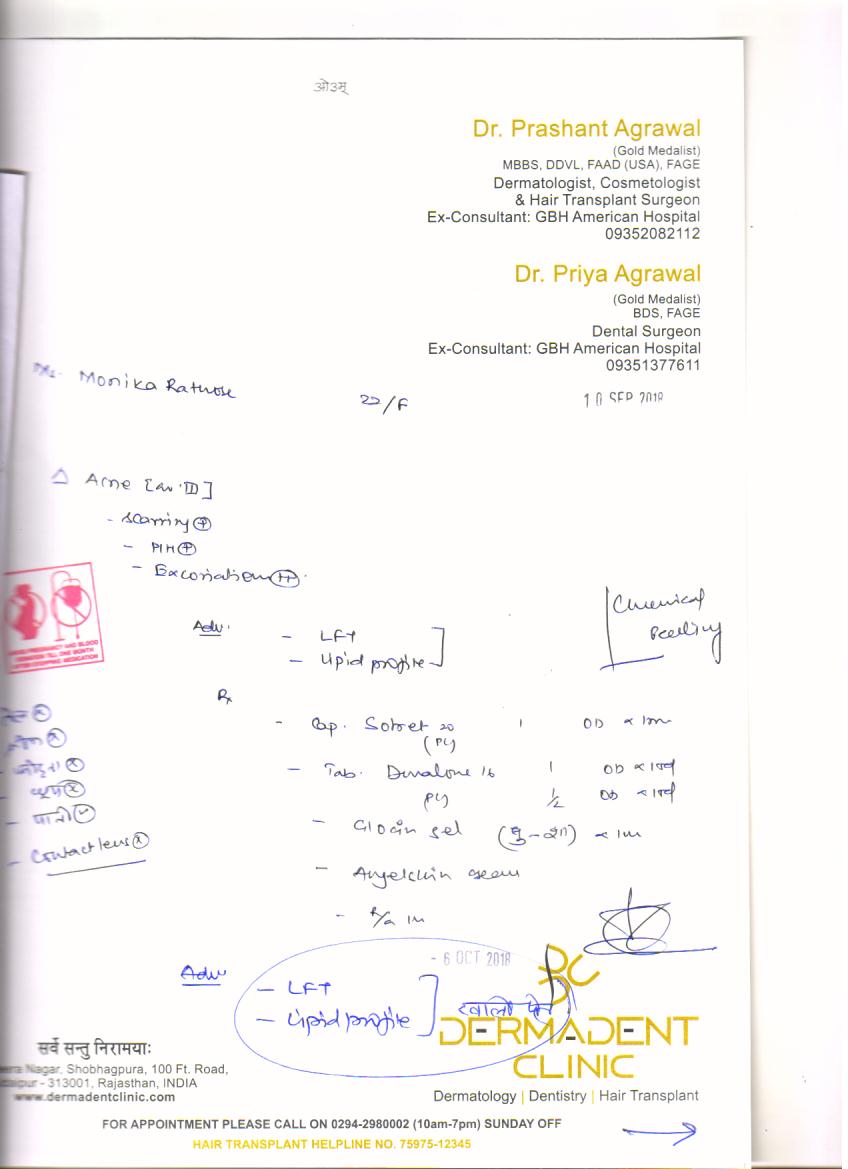 ओ३म्
Dr. Prashant Agrawal
(Gold Medalist)
MBBS, DDVL, FAAD (USA), FAGE
Dermatologist, Cosmetologist
& Hair Transplant Surgeon
Ex-Consultant: GBH American Hospital
09352082112
Dr. Priya Agrawal
(Gold Medalist)
BDS, FAGE
Dental Surgeon
Ex-Consultant: GBH American Hospital
09351377611
Monika Rathore
22/F
10 SEP 2018
Δ Acne [Gr III]
- Scarring (+)
- PIH (+)
- Excoriation (++)
Adv.
- LFT
- Lipid profile
Chemical Peeling
Rx
- Cap. Sotret 20 1 OD x 1m
- Tab. 16 1 OD x
1/2 OD x
- gel x 1m
- पानी
- Contact lens (x)
- 6 OCT 2018
Adv
- LFT
- Lipid profile
खाली पेट
DERMADENT
CLINIC
सर्वे सन्तु निरामयाः
Nagar, Shobhagpura, 100 Ft. Road,
- 313001, Rajasthan, INDIA
www.dermadentclinic.com
Dermatology | Dentistry | Hair Transplant
FOR APPOINTMENT PLEASE CALL ON 0294-2980002 (10am-7pm) SUNDAY OFF
HAIR TRANSPLANT HELPLINE NO. 75975-12345